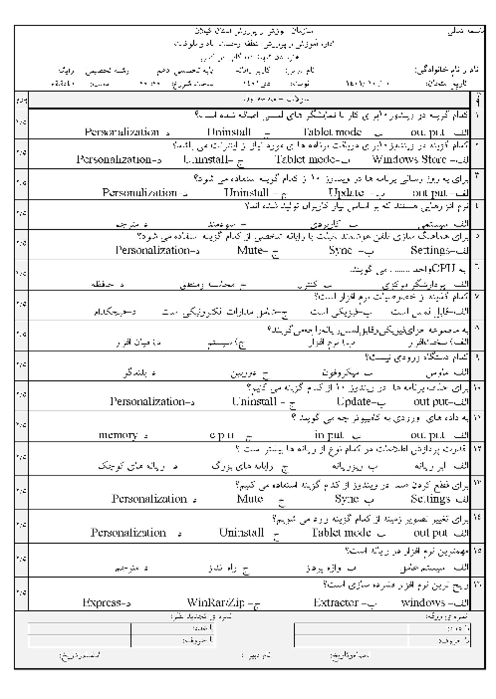 باسمه تعالی
سازمان آموزش و پرورش استان گیلان
نام و نام خانوادگی: نام درس: کاربر رایانه پایه تحصیلی: دهم رشته تحصیلی: رایانه
۱ کدام گزینه در ویندوز ۱۰ برای کار با نمایشگر های لمسی اضافه شده است؟
الف- out put ب- Tablet mode ج- Uninstall د- Personalization
۲ کدام گزینه در ویندوز ۱۰ برای دریافت برنامه های مورد نیاز از اینترنت می باشد؟
الف- Windows Store ب- Tablet mode ج- Uninstall د- Personalization
۳ برای به روز رسانی برنامه ها در ویندوز ۱۰ از کدام گزینه استفاده می شود؟
الف- out put ب- Update ج- Uninstall د- Personalization
۴ نرم افزارهایی هستند که بر اساس نیاز کاربران تولید شده اند؟
الف- سیستمی ب- کاربردی ج- سودمند د- مترجم
۵ برای هماهنگ سازی تلفن هوشمند، تبلت با رایانه شخصی از کدام گزینه استفاده می شود؟
الف- Settings ب- Sync ج- Mute د- Personalization
۶ به CPU واحد ........ می گویند.
الف- پردازشگر مرکزی ب- کنترل ج- محاسبه ومنطق د- حافظه
۷ کدام گزینه از خصوصیات نرم افزار است؟
الف- قابل لمس است ب- فیزیکی است ج- شامل مدارات الکترونیکی است د- هیچکدام
۸ به مجموعه اجزای فیزیکی و قابل لمس رایانه را چه می گویند؟
الف) سخت افزار ب) نرم افزار ج) سیستم د) میان افزار
۹ کدام دستگاه ورودی نیست؟
الف- ماوس ب- میکروفون ج- دوربین د- بلندگو
۱۰ برای حذف برنامه ها در ویندوز ۱۰ از کدام گزینه می کنیم؟
الف- out put ب- Update ج- Uninstall د- Personalization
۱۱ به داده های ورودی به کامپیوتر چه می گویند ؟
الف- out put ب- in put ج- c p u د- memory
۱۲ قدرت پردازش اطلاعات در کدام نوع از رایانه ها بیشتر است ؟
الف- ابر رایانه ب- ریزرایانه ج- رایانه های بزرگ د- رایانه های کوچک
۱۳ برای قطع کردن صدا در ویندوز از کدام گزینه استفاده می کنیم؟
الف- Settings ب- Sync ج- Mute د- Personalization
۱۴ برای تغییر تصویر زمینه از کدام گزینه وارد می شویم؟
الف- out put ب- Tablet mode ج- Uninstall د- Personalization
۱۵ مهمترین نرم افزار در رایانه است؟
الف- سیستم عامل ب- واژه پرداز ج- راه انداز د- مترجم
۱۶ رایج ترین نرم افزار فشرده سازی است؟
الف- windows ب- Extractor ج- WinRar/Zip د- Express